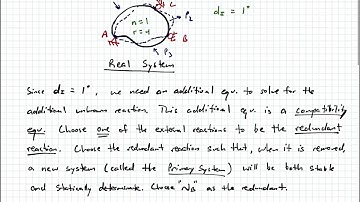 L
n=1
r=4
P₂
dI = 1°
A
B
P₃
Real System
Since dI = 1°, we need an additional eqn. to solve for the
additional unknown reaction. This additional eqn. is a compatibility
eqn. Choose one of the external reactions to be the redundant
reaction. Choose the redundant reaction such that, when it is removed,
a new system (called the Primary System) will be both stable
and statically determinate. Choose "NB" as the redundant.